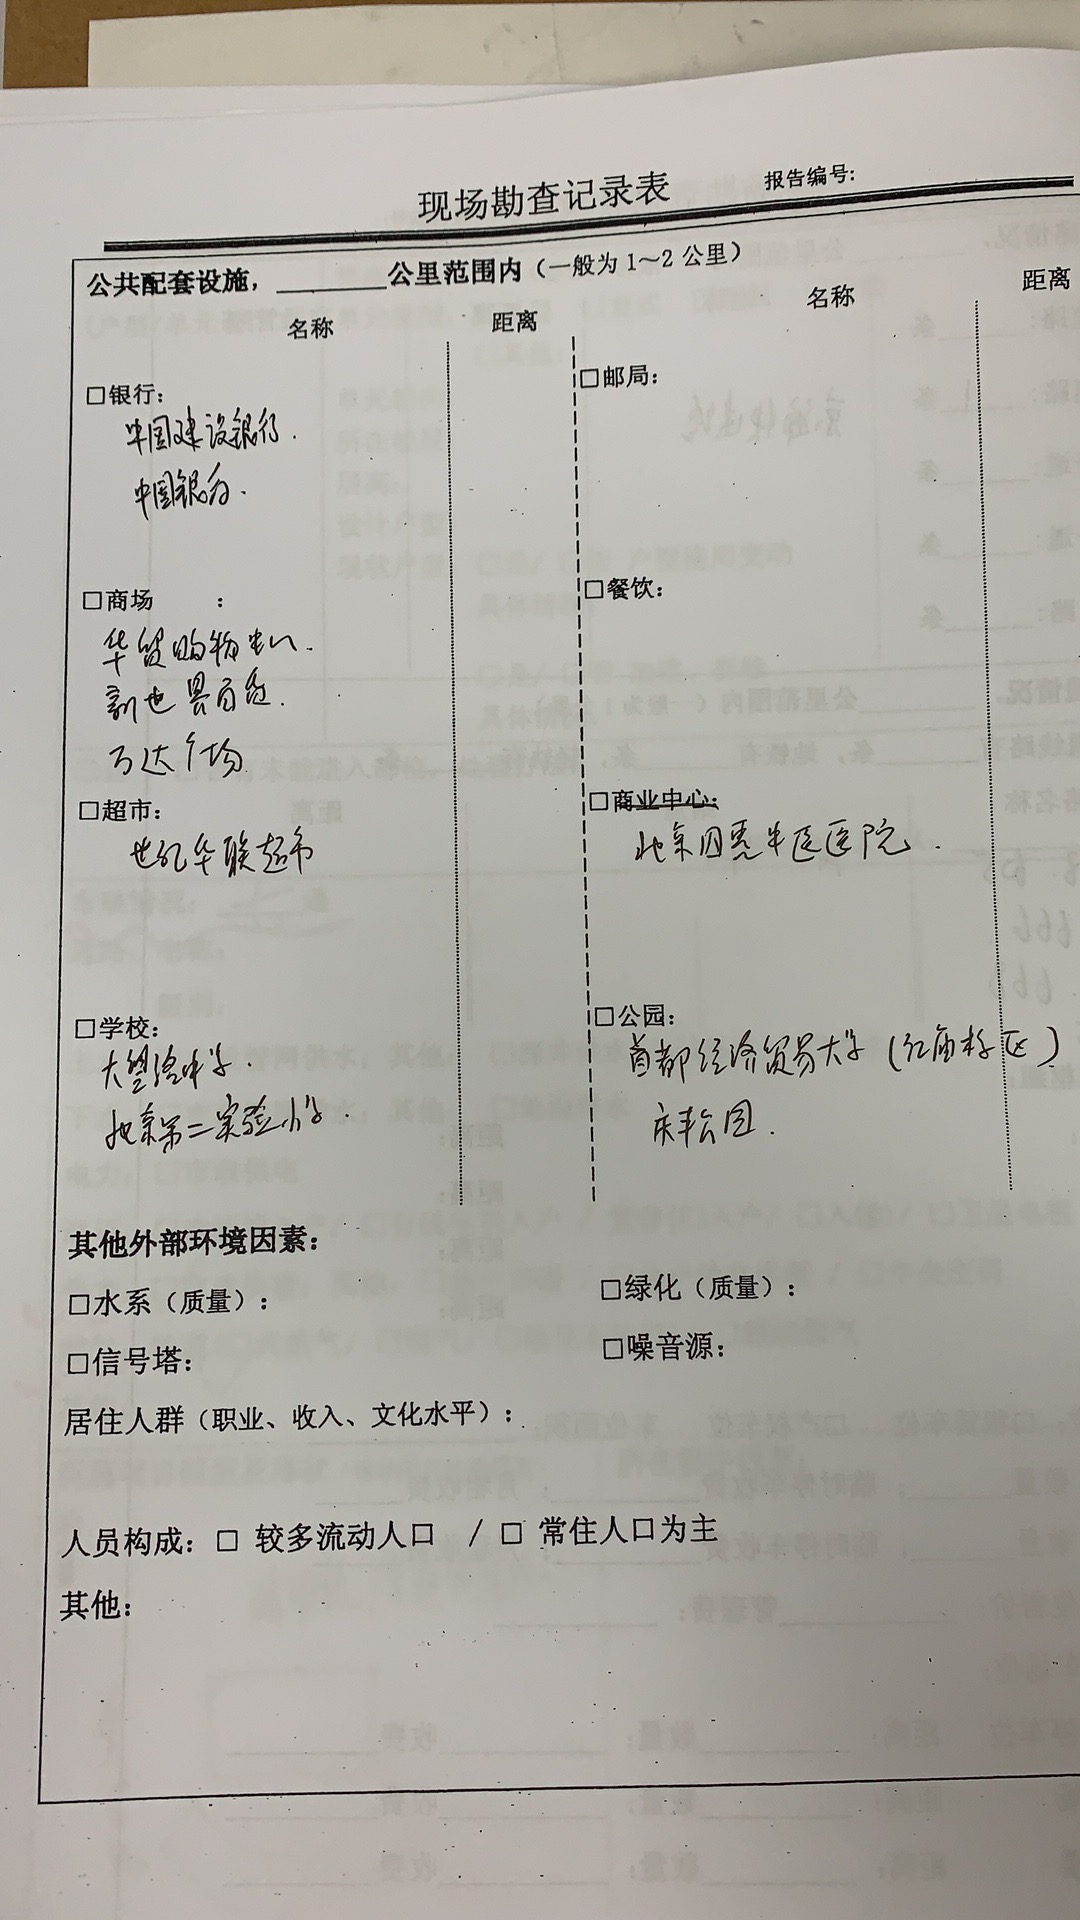 现场勘查记录表
报告编号:
公共配套设施，________公里范围内（一般为 1～2 公里）
名称 距离 名称 距离
□银行:
中国建设银行.
中国银行.
□邮局:
□商场 :
华贸购物中心.
新世界百货.
万达广场
□餐饮:
□超市:
世纪华联超市
□商业中心:
北京固恩中医医院.
□学校:
大望路中学.
北京第二实验小学.
□公园:
首都经济贸易大学(红庙校区)
庆丰公园.
其他外部环境因素:
□水系（质量）: □绿化（质量）:
□信号塔: □噪音源:
居住人群（职业、收入、文化水平）:
人员构成: □ 较多流动人口 / □ 常住人口为主
其他: